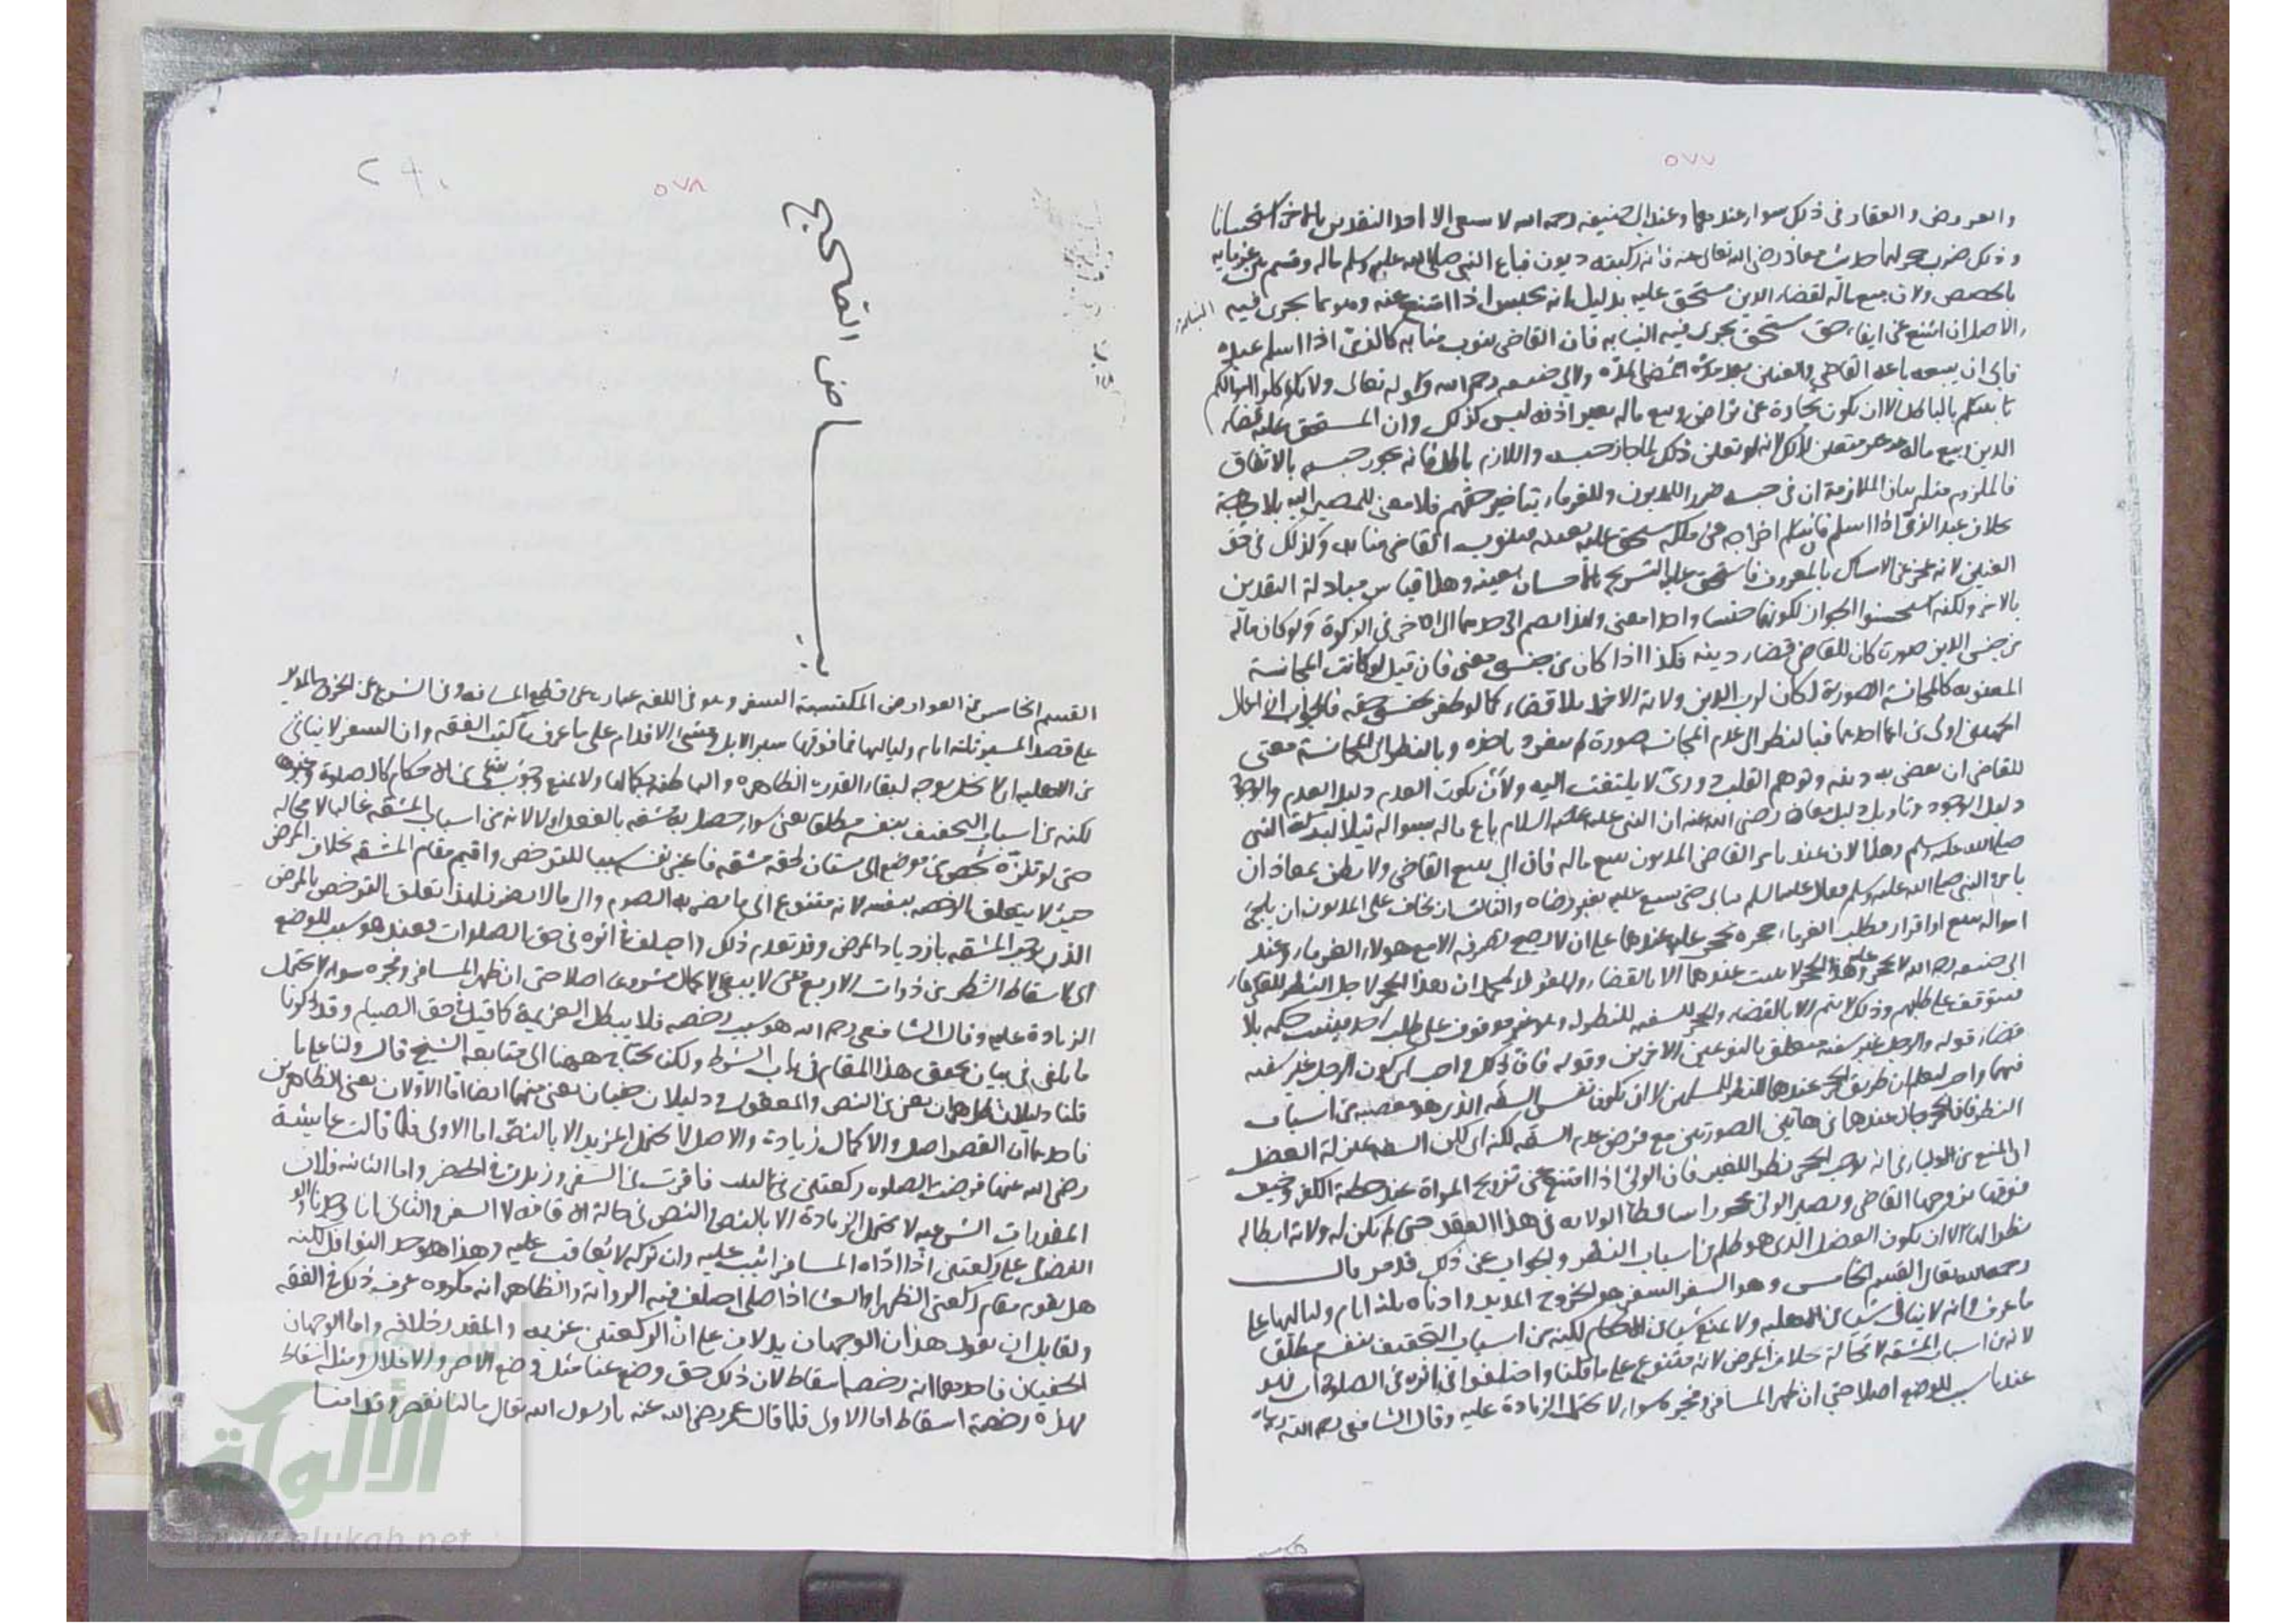 ٥٧٧
والعروض والعقار في ذلك سواء عندهما وعند ابي حنيفه رحمه الله لا يبيع الا احد النقدين بالاخر استحسانا
وذلك ضرب حجر لهما حديث معاذ رضي الله تعالى عنه فانه ركبته ديون فباع النبي صلى الله عليه وسلم ماله وقسم بين غرمايه
بالحصص ولان بيع ماله لقضاء الدين مستحق عليه بدليل انه يحبس اذا امتنع عنه وهو مما يجري فيه
النيابة
الاصل ان امتنع عن ايفاء حق مستحق يجري فيه النيابه فان القاضي ينوب منابه كالذمي اذا اسلم عبده
فابى ان يبيعه باعه القاضي والعنين بعد مدة ولابي حنيفه رحمه الله قوله تعالى ولا تاكلوا اموالكم
بينكم بالباطل الا ان تكون تجارة عن تراض وبيع ماله بغير اذنه ليس كذلك وان المستحق عليه قضاء
الدين وبيع ماله غير متعين لذلك لانه لو تعين ذلك لما جاز حبسه واللازم باطل فانه يجوز حبسه بالاتفاق
فالملزوم مثله بيان الملازمة ان في حبسه ضرر المديون وللغرماء بتاخير حقهم فلا معنى للمصير اليه بلا حاجة
بخلاف عبد الذمي اذا اسلم فانه اخراجه عن ملكه مستحق عليه بعينه فينوب القاضي منابه وكذلك في حق
العنين لانه عجز عن الامساك بالمعروف فاستحق عليه التسريح بالاحسان بعينه وهذا قياس مبادلة النقدين
بالاخر ولكنه استحسنوا الجواز لكونهما جنسا واحدا معنى ولهذا يضم احدهما الى الاخر في الزكوة ولو كان ماله
من جنس الدين صورة كان للقاضي قضاء دينه فكذا اذا كان من جنسه معنى فان قيل لو كانت المجانسة
المعنويه كالمجانسة الصورية لكان لرب الدين ولاية الاخذ بلا قضاء كما لو ظفر بجنس حقه فالجواب ان اعمال
الجهتين اولى من اهمال احدهما فبالنظر الى عدم المجانسه صورة لم ياخذه وبالنظر الى المجانسة معنى
للقاضي ان يقضي به دينه وتوهم القلب لا يلتفت اليه ولان يكون العدم دليل العدم والوجود
دليل الوجود وتاويل دليل معاذ رضي الله عنه ان النبي عليه السلام باع ماله بسواله
صلى الله عليه وسلم وهذا لان عندهما يامر القاضي المديون ببيع ماله فان ابى يبيع القاضي ولا يظن بمعاذ ان
يامره النبي صلى الله عليه وسلم فيابى حتى يبيع عليه بغير رضاه والثالث ان يخاف على المديون ان يلجئ
امواله ببيع او اقرار فطلب الغرماء حجره يحجر عليه عندهما على ان لا يصح تصرفه الا مع هولاء الغرماء وعند
ابي حنيفه رحمه الله لا يحجر عليه وهذا الحجر لا يثبت عندهما الا بالقضاء ان هذا الحجر لاجل النظر للغرماء
فيتوقف على طلبهم وذلك لا يتم الا بالقضاء والحجر للسفيه للنظر له وهو غير موقوف على طلب احد فيثبت حكمه بلا
قضاء قوله والرجل غير سفيه متعلق بالنوعين الاخرين وقوله فان ذلك واجب اي كون الرجل غير سفيه
فيهما واجب ليعلم ان طريق الحجر عندهما النظر للمسلمين لا ان يكون نفس السفه الذي هو معصيه من اسباب
النظر فان الحجر جاز عندهما في هاتين الصورتين مع فرض عدم السفه لكن السفه بمنزلة العضل
اي المنع من الاولياء في انه يوجب الحجر نظرا للغير فان الولي اذا امتنع عن تزويج المراة عند خطبة الكفو وخيف
فوتها يزوجها القاضي ويصير الولي محجورا ساقط الولايه في هذا العقد حتى لم تكن له ولاية ابطاله
نظرا لها الا ان يكون العضل الذي هو ظلم من اسباب النظر والجواب عن ذلك قد مر قال
رحمه الله تعالى القسم الخامس وهو السفر السفر هو الخروج المديد وادناه ثلثة ايام ولياليها على
ما عرف وانه لا ينافي شيئا من الاهليه ولا يمنع شيئا من الاحكام لكنه من اسباب التخفيف بنفسه مطلقا
لانه من اسباب المشقه لا محالة بخلاف المرض لانه متنوع على ما قلنا واختلفوا في اثره في الصلوة اما هو
عندنا سبب للوضع اصلا حتى ان ظهر المسافر وفجره سواء لا يحتمل الزيادة عليه وقال الشافعي رحمه الله
٥٧٨
٢٩٠
بياض صحيح
القسم الخامس من العوارض المكتسبة السفر وهو في اللغه عبارة عن قطع المسافه وفي الشرع عن الخروج المديد
على قصد المسير ثلثة ايام ولياليها فما فوقها سير الابل ومشي الاقدام على ما عرف في كتب الفقه وان السفر لا ينافي
من الاهليه اي لا يخل بوجه لبقاء القدرة الظاهرة والباطنه بكمالها ولا يمنع وجوب شيء من الاحكام كالصلوة وغيرها
لكنه من اسباب التخفيف بنفسه مطلقا يعني سواء حصل به مشقه بالفعل او لا لانه من اسباب المشقه غالبا لا محاله
حتى لو تنزه شخص من موضع الى بستان لحقه مشقه فاعتبر نفسه سببا للترخص واقيم مقام المشقه بخلاف المرض
حيث لا يتعلق الرخصه بنفسه لانه متنوع الى ما يضر به الصوم والى ما لا يضر فلهذا تعلق الترخص بالمرض
الذي يوجب المشقه بازدياد المرض وقد تقدم ذلك واختلف في اثره في حق الصلوات فعندنا هو سبب للوضع
اي لاسقاط الشطر من ذوات الاربع حتى لا يبقى الاكمال مشروعا اصلا حتى ان ظهر المسافر وفجره سواء لا يحتمل
الزيادة عليه وقال الشافعي رحمه الله هو سبب رخصه فلا يبطل العزيمة كما قيل في حق الصيام وقد ذكرنا
ما يكفي في بيان تحقق هذا المقام في باب الشرط ولكنا نحتاج ههنا الى متابعه الشيخ قال ولنا على ما
قلنا دليلان ظاهران يعني من النص والمعقول ودليلان خفيان يعني منهما ايضا اما الاولان يعني الظاهرين
فاحدهما ان القصر اصل والاكمال زيادة والاصل لا يحتمل المزيد الا بالنص اما الاولى فلما قالت عايشة
رضي الله عنها فرضت الصلوه ركعتين ركعتين فاقرت في السفر وزيدت في الحضر واما الثانيه فلان
المقدرات الشرعيه لا تحتمل الزيادة الا بالنص والنص في حالة الاقامه لا السفر والثاني انا وجدنا
الفضل على ركعتين اذا اداه المسافر اثيب عليه وان تركه لا يعاقب عليه وهذا هو حد النوافل لكنه
هل يقوم مقام ركعتي الظهر او العشاء اذا صلى اختلف فيه الرواية والظاهر انه مكروه عرف ذلك في الفقه
ولقايل ان يقول هذان الوجهان يدلان على ان الركعتين عزيمه والمقدر خلافه واما الوجهان
الخفيان فاحدهما انه رخصه اسقاط لان ذلك حق وضع عنا مثل وضع الاصر والاغلال
بهذه رخصة اسقاط اما الاول فلما قال عمر رضي الله عنه يا رسول الله تعالى ما لنا نقصر وقد امنا
الألوكة
www.alukah.net